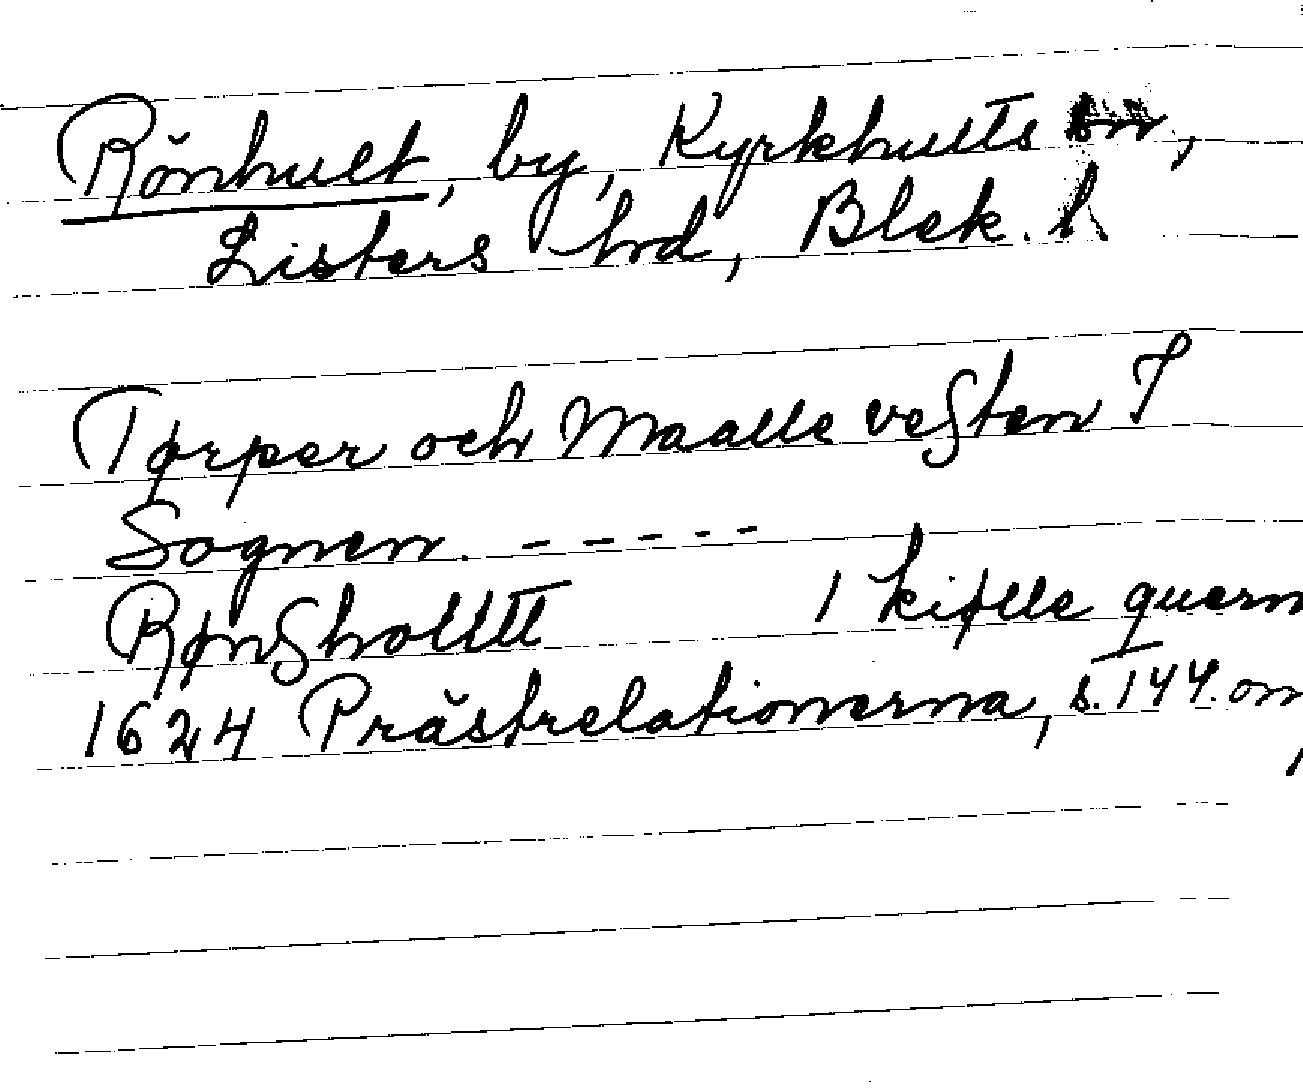 Rönhult, by, Kyrkhults sn,
Listers hrd, Blek. l
Tørper och Maalle vesten I
Sognen. - - - - -
Rønsholltt 1 kiølle quern
1624 Prästrelationerna, s. 144. om